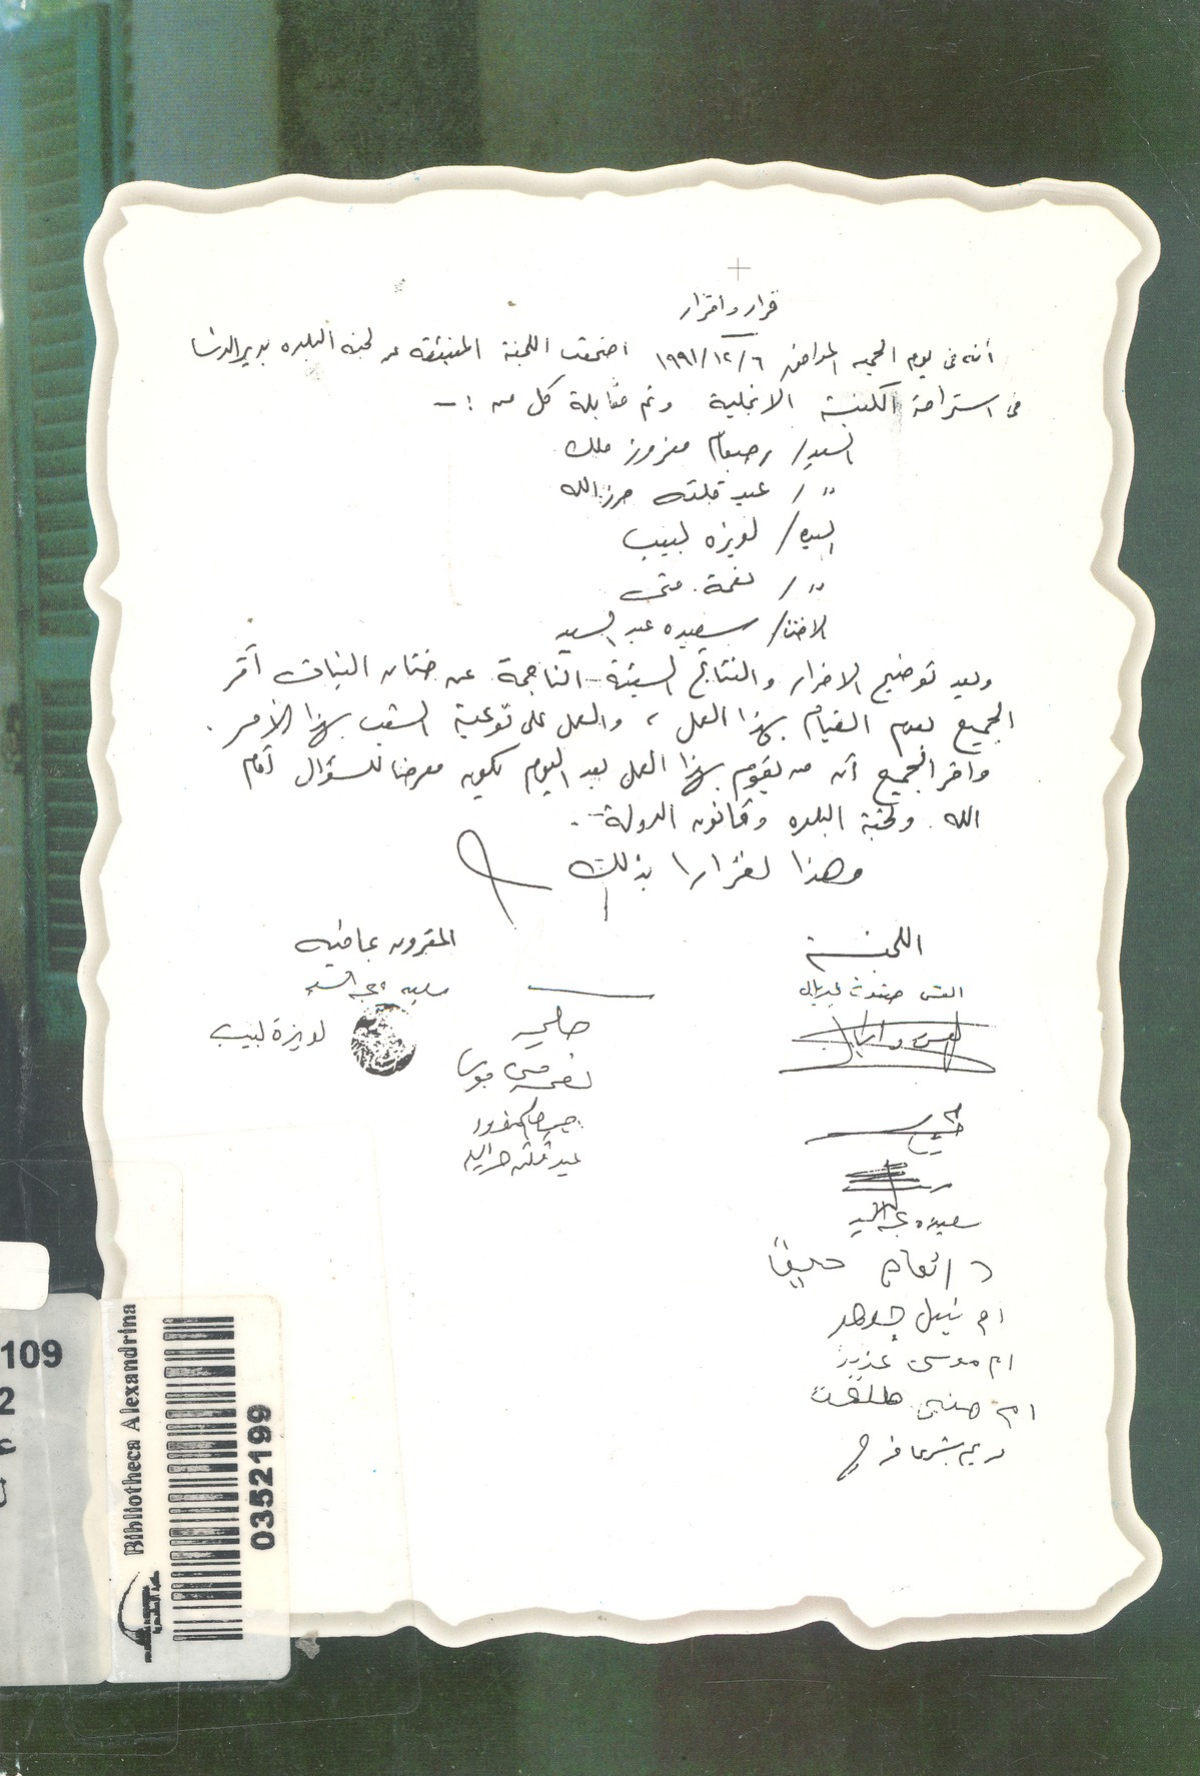 قرار واقرار
أنه فى يوم الجمعه الموافق ١٩٩١/١٢/٦ اجتمعت اللجنة المنبثقة عن لجنة البلده بدير البرشا
فى استراحة الكنيسة الانجلية وتم مقابلة كل من :-
السيد/ رحيمام مفروز ملك
" / عيد قلته حرزالله
السيده/ لويزه لبيب
" / نغمة متى
الاخت/ سعيده عبد السيد
وبعد توضيح الاضرار والنتائج السيئة الناجمة عن ختان البنات أقر
الجميع بعدم القيام بهذا العمل ، والعمل على توعية الشعب بهذا الأمر .
واقر الجميع أن من يقوم بهذا العمل بعد اليوم يكون معرضا للسؤال أمام
الله ولجنة البلده وقانون الدولة .
وهذا اقرارا بذلك
اللجنة
المقرون بما فيه
القس
لويزة لبيب
نغمه متى
عيد قلته حرزالله
سعيده عبد السيد
د/ انعام
ام نبيل جوهر
ام موسى عزيز
ام
مريم بشرى فرج
109
2
Bibliotheca Alexandrina
0352199